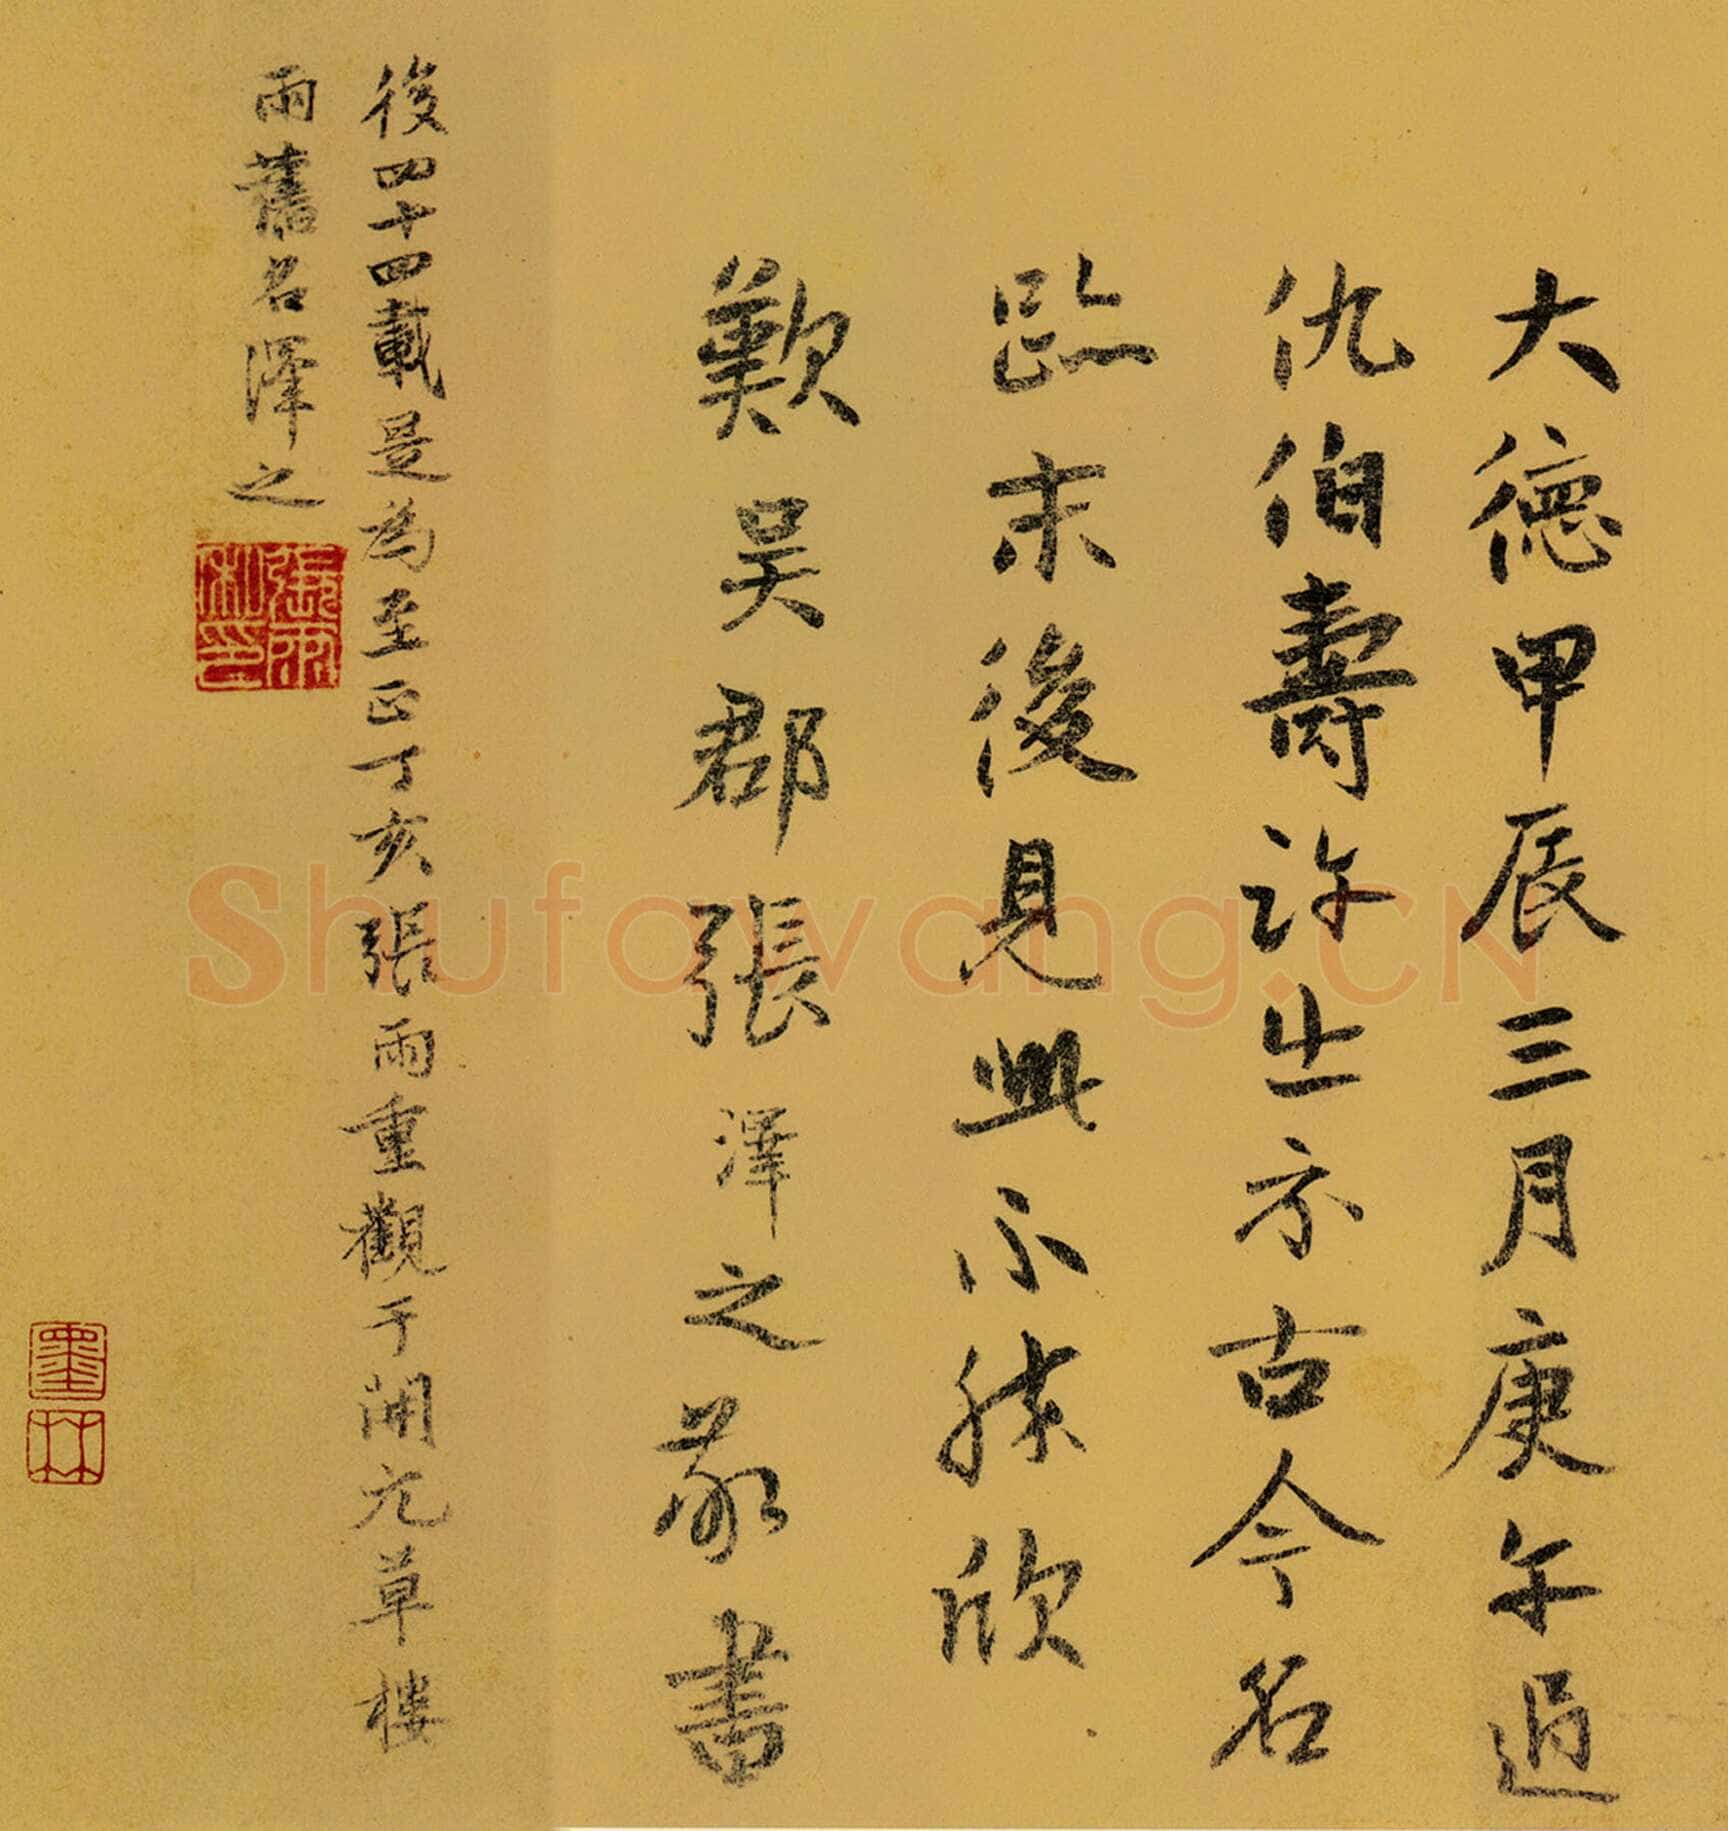 大德甲辰三月庚午過
仇伯壽許出示古今名
跡末後見此不勝欣
歎吴郡張澤之敬書
後四十四載是為至正丁亥張雨重觀于開元草樓
雨舊名澤之
張雨私印
墨林
Shufawang.CN